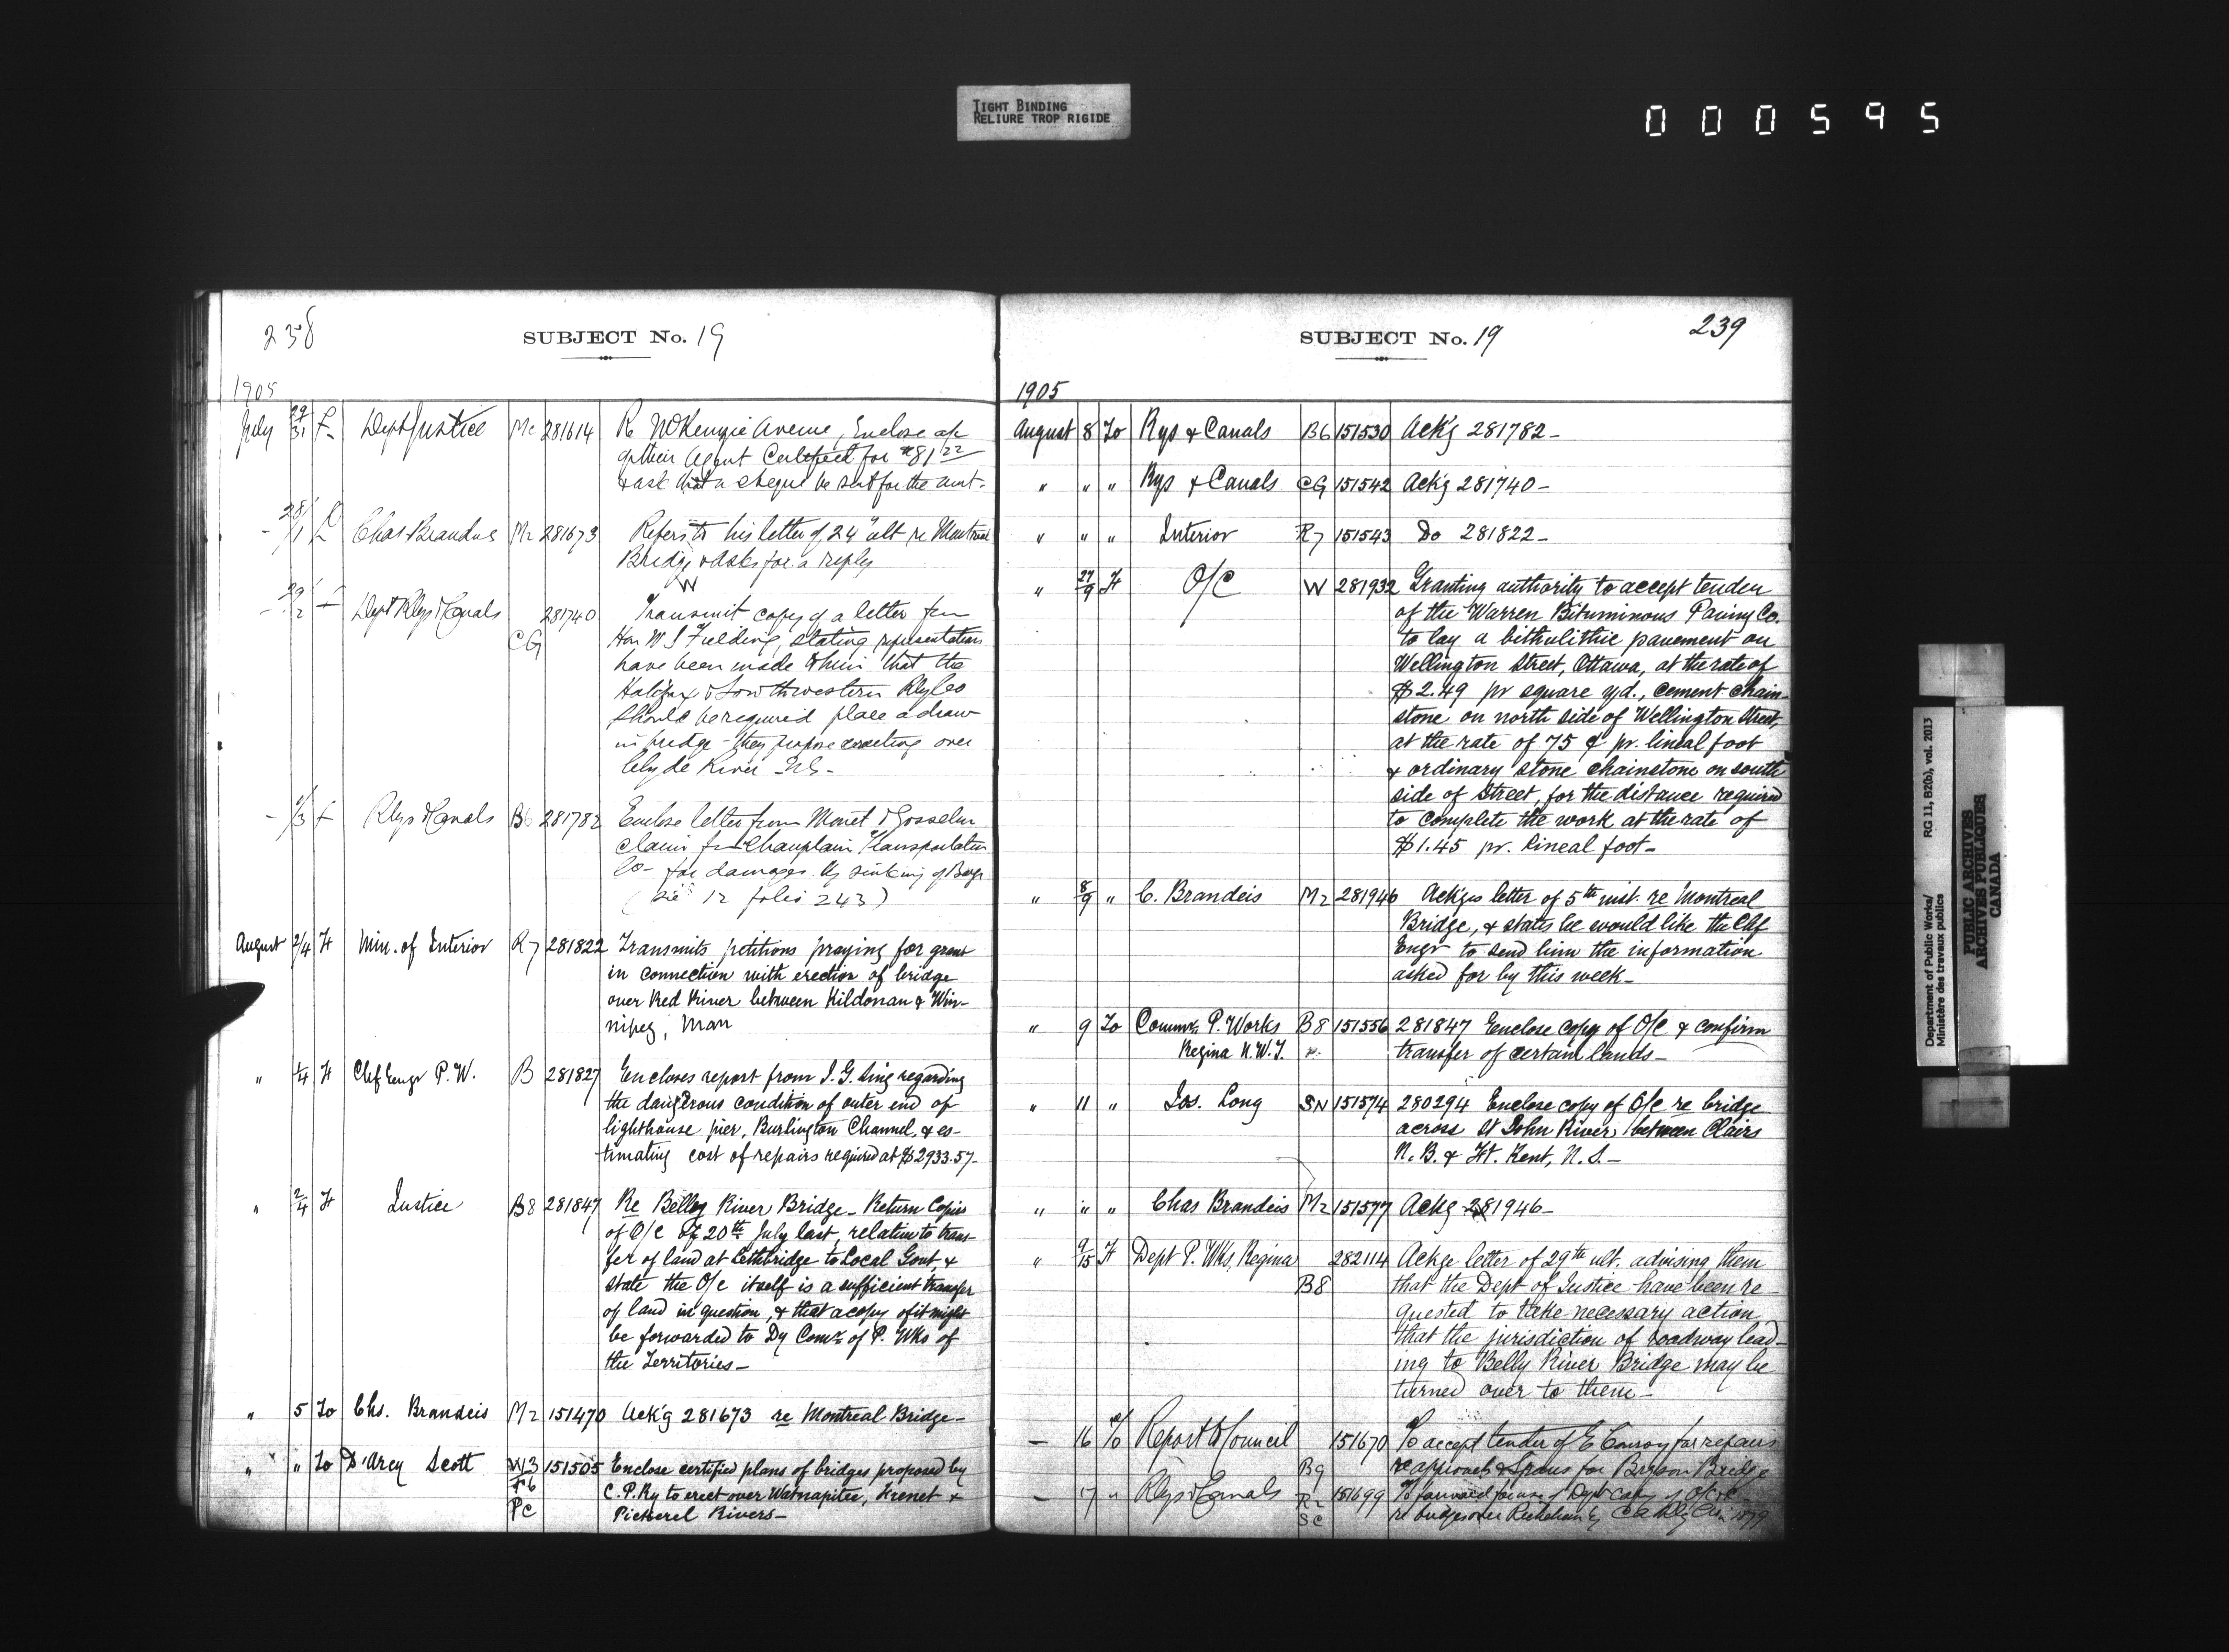 TIGHT BINDING
RELIURE TROP RIGIDE
000595
238
SUBJECT No. 19
1905
July 29/31 f Dept Justice Mc 281614 Re McKenzie Avenue, Enclose a/c
of their Agent Certified for $81.22
& ask that a cheque be sent for the amt.
28/1 f Chas Brandeis M2 281673 Refers to his letter of 24" ult re Montreal
Bridge & asks for a reply
W
29/2 f Dept Rlys & Canals CG 281740 Transmit copy of a letter fm
Hon W S Fielding, stating representations
have been made to him that the
Halifax & Southwestern Rly Co
should be required place a draw
in bridge they propose erecting over
Clyde River N.S.
1/3 f Rlys & Canals B6 281782 Enclose letter from Monet & Gosselin
claim fm Champlain Transportation
Co- for damages by sinking of Barge
( 12 folio 243 )
August 2/4 Ft Min. of Interior R7 281822 Transmits petitions praying for grant
in connection with erection of bridge
over Red River between Kildonan & Win-
nipeg, Man
" 1/4 Ft Chf Engr P.W. B 281827 Encloses report from J. G. Sing regarding
the dangerous condition of outer end of
lighthouse pier, Burlington Channel, & es-
timating cost of repairs required at $2933.57-
" 2/4 Ft Justice B8 281847 Re Belly River Bridge - Return Copies
of O/C of 20th July last, relative to trans-
fer of land at Lethbridge to Local Govt, &
state the O/c itself is a sufficient transfer
of land in question, & that a copy of it might
be forwarded to Dy Comr of P. Wks of
the Territories -
" 5 To Chs. Brandeis M2 151470 Ack'g 281673 re Montreal Bridge -
" " To D'Arcy Scott W3 151505 Enclose certified plans of bridges proposed by
F6 C.P.Ry to erect over Wanapitei, French &
PC Pickerel Rivers -
SUBJECT No. 19
239
1905
August 8 To Rys & Canals B6 151530 Ack'g 281782 -
" " " Rys & Canals CG 151542 Ack'g 281740 -
" " " Interior R7 151543 Do 281822 -
" 27/9 Ft O/C W 281932 Granting authority to accept tender
of the Warren Bituminous Paving Co.
to lay a bithulithic pavement on
Wellington Street, Ottawa, at the rate of
$2.49 pr square yd., cement chain-
stone on north side of Wellington Street,
at the rate of 75 ¢ pr. lineal foot
& ordinary stone chainstone on south
side of Street, for the distance required
to complete the work at the rate of
$1.45 pr. lineal foot -
" 8/9 " C. Brandeis M2 281946 Ackges letter of 5th inst. re Montreal
Bridge, & states he would like the Chf
Engr to send him the information
asked for by this week -
" 9 To Commr. P. Works B8 151556 281847 Enclose copy of O/C & confirm
Regina N.W.T. transfer of certain lands -
" 11 " Jos. Long SN 151574 280294 Enclose copy of O/c re bridge
across St John River between Clairs
N.B. & Ft. Kent, N.S. -
" " " Chas Brandeis M2 151577 Ackg 281946 -
" 9/15 Ft Dept P. Wks, Regina 282114 Ackge letter of 29th ult. advising them
B8 that the Dept of Justice have been re-
quested to take necessary action
that the jurisdiction of roadway lead-
ing to Belly River Bridge may be
turned over to them -
— 16 To Report to Council 151670 To accept tender of E Conroy for repairs
B9 re approach & Spans for Bryson Bridge
— 17 " Rlys & Canals R2 151699 To forward for use of Dept copy of O/C
SC re bridge over Richelieu by
Department of Public Works/ RG 11, B2(b), vol. 2013
Ministère des travaux publics
PUBLIC ARCHIVES
ARCHIVES PUBLIQUES
CANADA